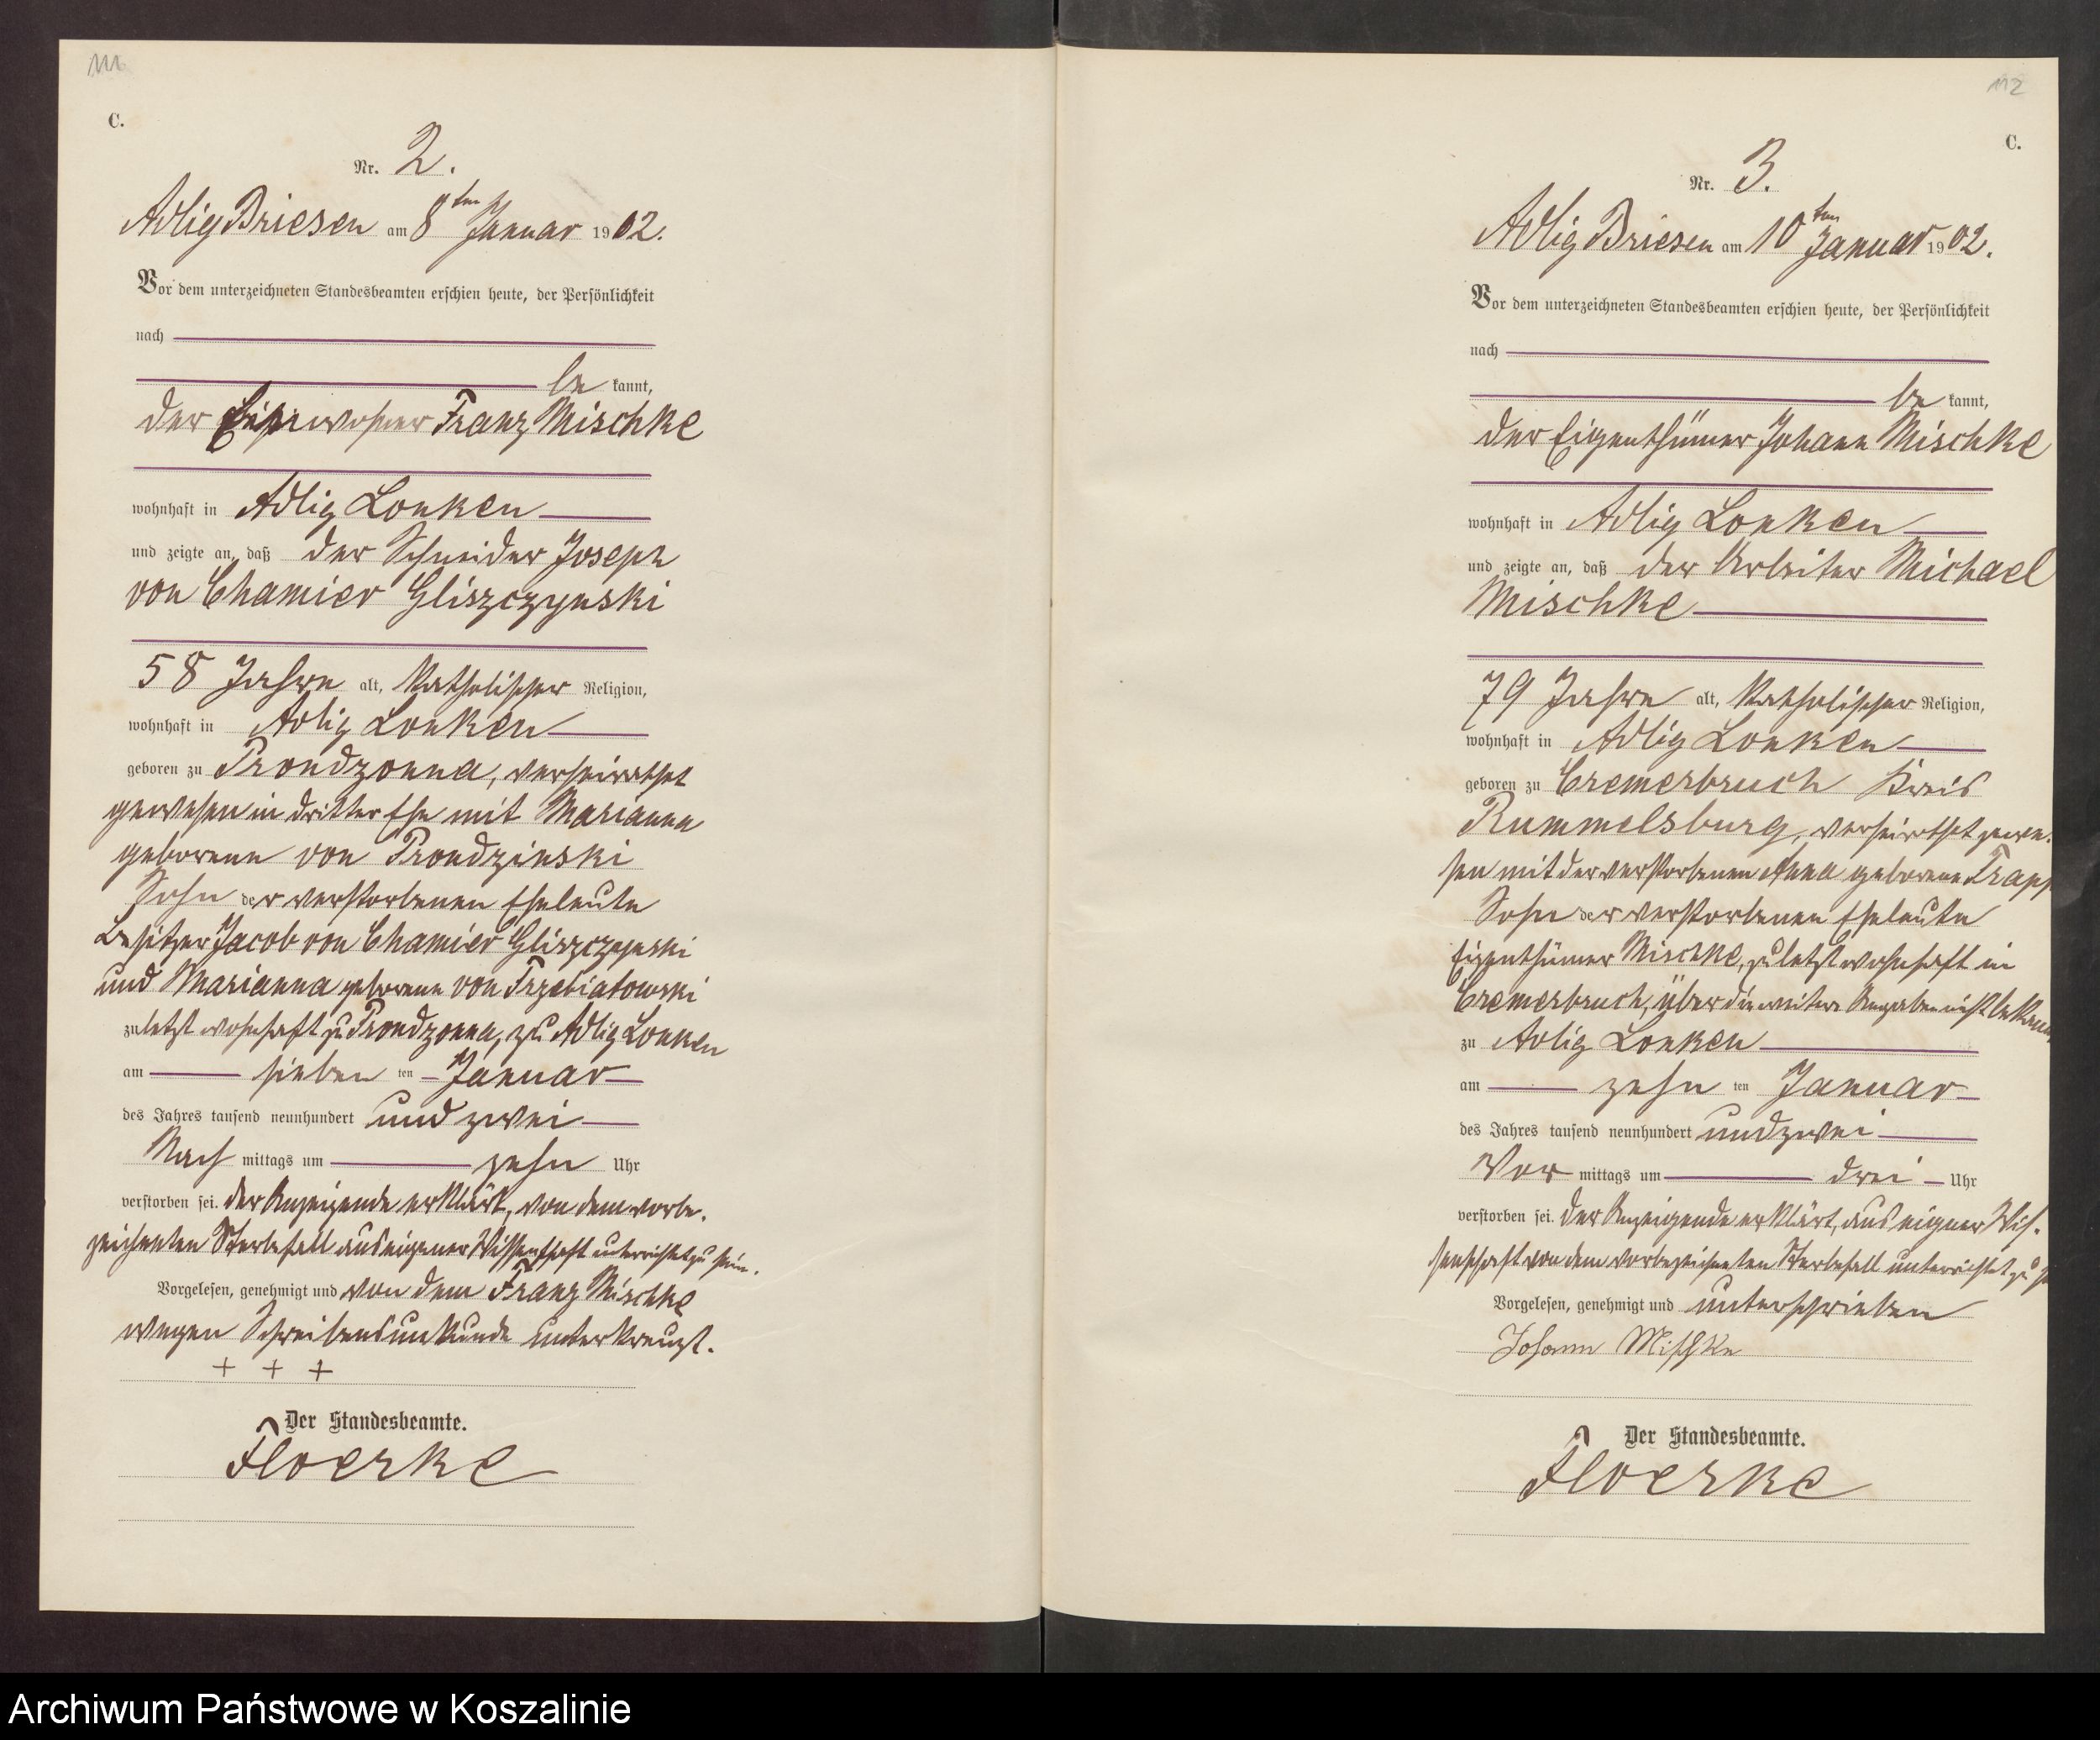 111
C.
Nr. 2.
Adlig Briesen am 8ten Januar 1902.
Vor dem unterzeichneten Standesbeamten erschien heute, der Persönlichkeit
nach
be kannt,
der Einwohner Franz Mischke
wohnhaft in Adlig Lonken
und zeigte an, daß der Schneider Joseph
von Chamier Gliszczynski
58 Jahre alt, katholischer Religion,
wohnhaft in Adlig Lonken
geboren zu Prondzonna, verheirathet
gewesen in dritter Ehe mit Marianna
geborene von Prondzinski
Sohn der verstorbenen Eheleute
Besitzer Jacob von Chamier Gliszczynski
und Marianna geborene von Trzebiatowski
zuletzt wohnhaft zu Prondzonna, zu Adlig Lonken
am sieben ten Januar
des Jahres tausend neunhundert und zwei
Nach mittags um zehn Uhr
verstorben sei. Der Anzeigende erklärt, von dem vorbe-
zeichneten Sterbefall aus eigener Wissenschaft unterrichtet zu sein.
Vorgelesen, genehmigt und von dem Franz Mischke
wegen Schreibensunkunde unterkreuzt.
+ + +
Der Standesbeamte.
Floerke
112
C.
Nr. 3.
Adlig Briesen am 10ten Januar 1902.
Vor dem unterzeichneten Standesbeamten erschien heute, der Persönlichkeit
nach
be kannt,
der Eigenthümer Johann Mischke
wohnhaft in Adlig Lonken
und zeigte an, daß der Arbeiter Michael
Mischke
79 Jahre alt, katholischer Religion,
wohnhaft in Adlig Lonken
geboren zu Cremerbruch Kreis
Rummelsburg, verheirathet gewe-
sen mit der verstorbenen Anna geborene Trapp
Sohn der verstorbenen Eheleute
Eigenthümer Mischke, zuletzt wohnhaft in
Cremerbruch, über die weitere Angaben nicht bekannt
zu Adlig Lonken
am zehn ten Januar
des Jahres tausend neunhundert und zwei
Vor mittags um drei Uhr
verstorben sei. Der Anzeigende erklärt, aus eigner Wis-
senschaft von dem vorbezeichneten Sterbefall unterrichtet zu
Vorgelesen, genehmigt und unterschrieben
Johann Mischke
Der Standesbeamte.
Floerke
Archiwum Państwowe w Koszalinie